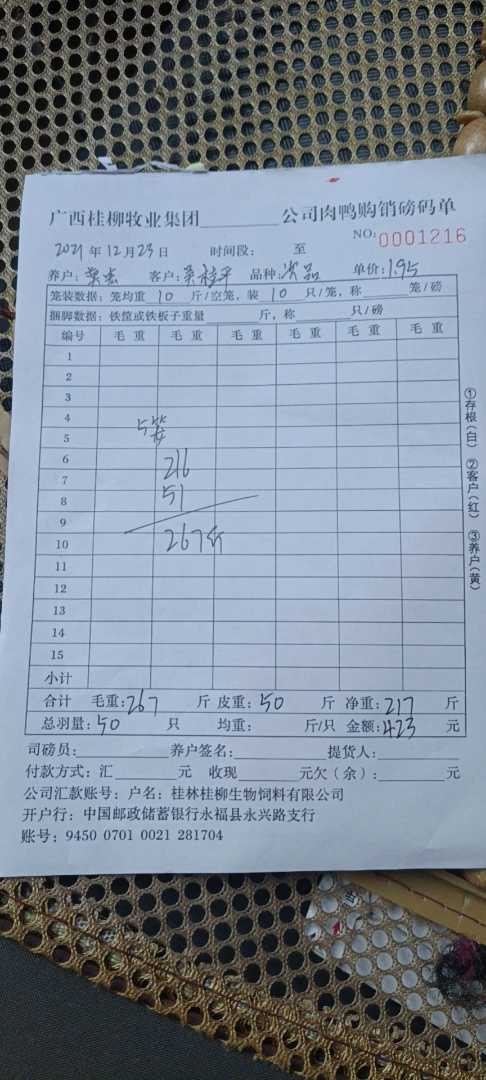 广西桂柳牧业集团________公司肉鸭购销磅码单
NO:0001216
2021年12月23日 时间段: 至
养户: 客户: 品种:次品 单价:1.95
笼装数据:笼均重 10 斤/空笼,装 10 只/笼,称______笼/磅
捆脚数据:铁筐或铁板子重量______斤,称______只/磅
编号 毛重 毛重 毛重 毛重 毛重 毛重
1
2
3
4
5 5笼
6
7 216
8 51
9
10 267斤
11
12
13
14
15
小计
合计 毛重:267 斤 皮重:50 斤 净重:217 斤
总羽量:50 只 均重: 斤/只 金额:423 元
司磅员:________ 养户签名:________ 提货人:________
付款方式:汇______元 收现______元欠(余):______元
公司汇款账号:户名:桂林桂柳生物饲料有限公司
开户行:中国邮政储蓄银行永福县永兴路支行
账号:9450 0701 0021 281704
①存根(白) ②客户(红) ③养户(黄)